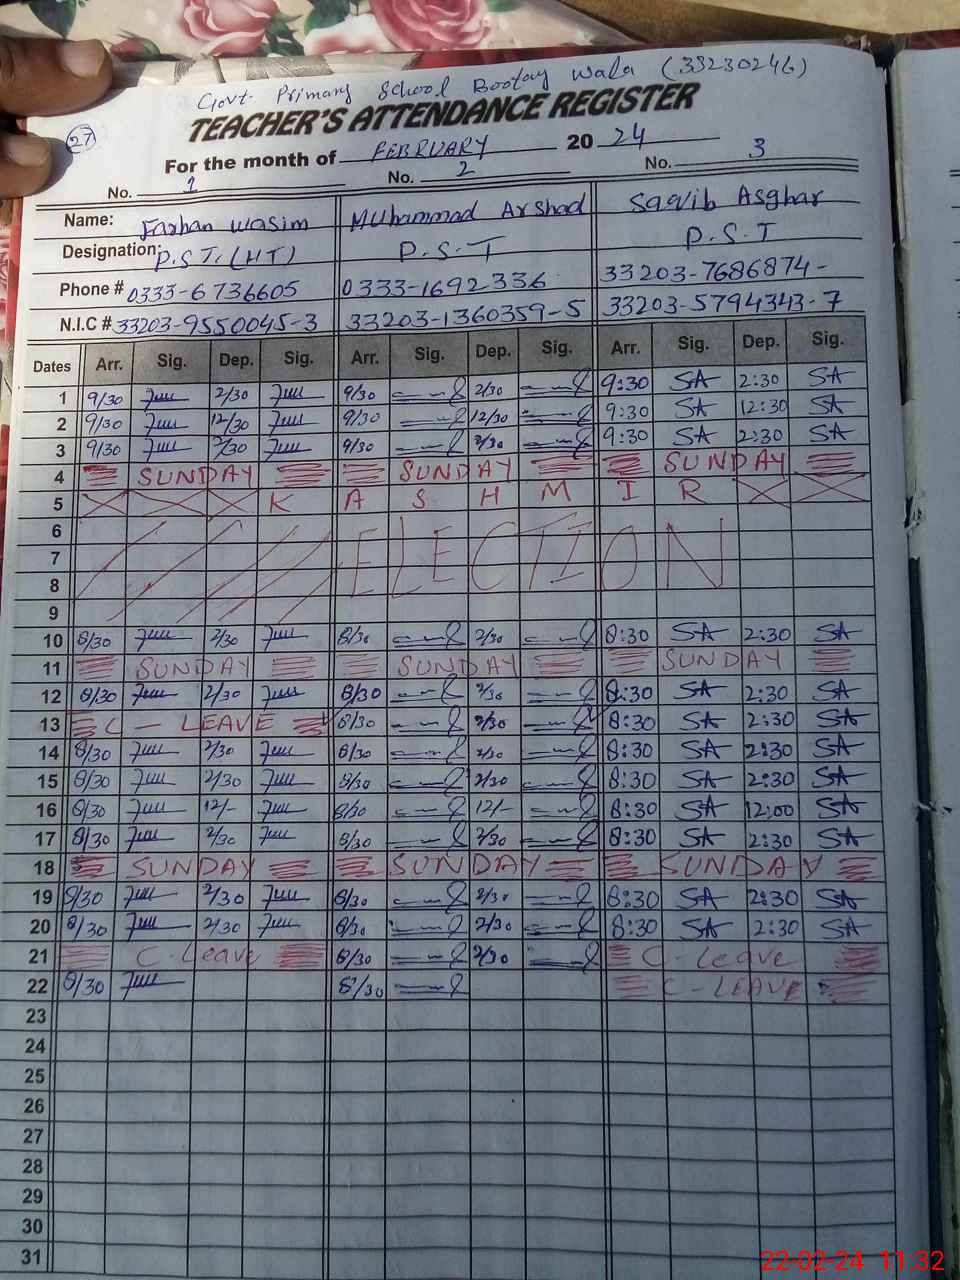 Govt. Primary School Bootay Wala (33230246)
TEACHER'S ATTENDANCE REGISTER
27
For the month of FEBRUARY 2024
No. 1 No. 2 No. 3
Name: Farhan Wasim Muhammad Arshad Saqib Asghar
Designation: P.S.T. (HT) P.S.T P.S.T
Phone # 0333-6736605 0333-1692336 33203-7686874-
N.I.C # 33203-9550045-3 33203-1360359-5 33203-5794343-7
Dates Arr. Sig. Dep. Sig. Arr. Sig. Dep. Sig. Arr. Sig. Dep. Sig.
1 9/30 2/30 9/30 2/30 9:30 SA 2:30 SA
2 9/30 12/30 9/30 12/30 9:30 SA 12:30 SA
3 9/30 2/30 9/30 2/30 9:30 SA 2:30 SA
4 SUNDAY SUNDAY SUNDAY
5 K A S H M I R
6
7 ELECTION
8
9
10 8/30 2/30 8/30 2/30 8:30 SA 2:30 SA
11 SUNDAY SUNDAY SUNDAY
12 8/30 2/30 8/30 2/30 8:30 SA 2:30 SA
13 C - LEAVE 8/30 2/30 8:30 SA 2:30 SA
14 8/30 2/30 8/30 2/30 8:30 SA 2:30 SA
15 8/30 2/30 8/30 2/30 8:30 SA 2:30 SA
16 8/30 12/- 8/30 12/- 8:30 SA 12:00 SA
17 8/30 2/30 8/30 2/30 8:30 SA 2:30 SA
18 SUNDAY SUNDAY SUNDAY
19 8/30 2/30 8/30 2/30 8:30 SA 2:30 SA
20 8/30 2/30 8/30 2/30 8:30 SA 2:30 SA
21 C-Leave 8/30 2/30 C-Leave
22 8/30 8/30 C-LEAVE
23
24
25
26
27
28
29
30
31
22-02-24 11:32